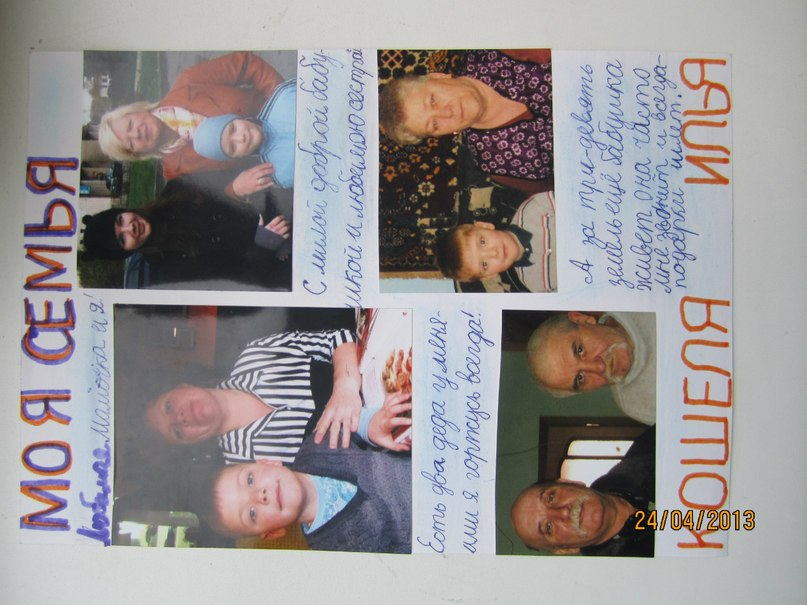 МОЯ СЕМЬЯ
Любимая Мамочка и я!
С милой доброй бабу-
шкой и любимою сестрой
Есть два деда у меня-
ими я горжусь всегда!
А за три-девять
земель ещё бабушка
живет она часто
мне звонит и всегда-
подарки шлет.
КОШЕЛЯ ИЛЬЯ
24/04/2013